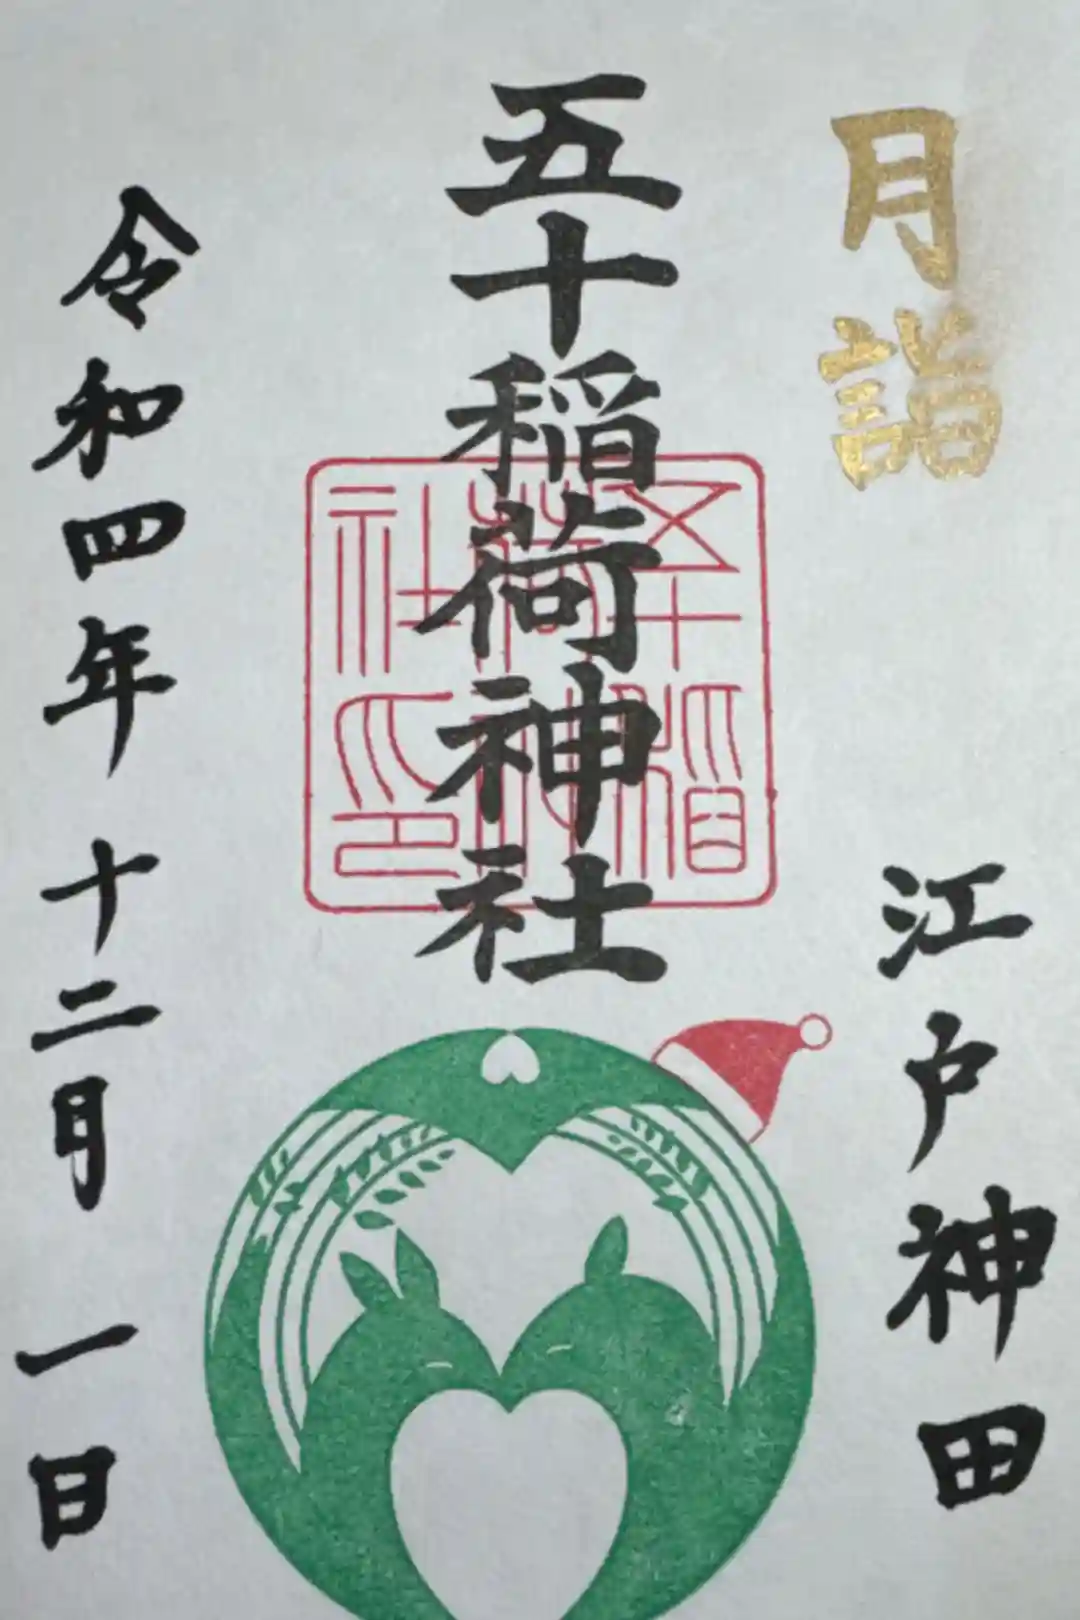 月詣
江戸神田
五十稲荷神社
五十稲荷神社印
令和四年十二月一日